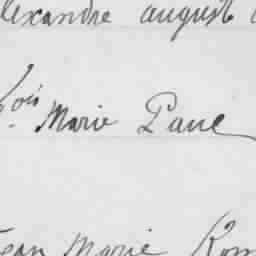 lexandre august
lois Marie Paul
Jean Marie Rom